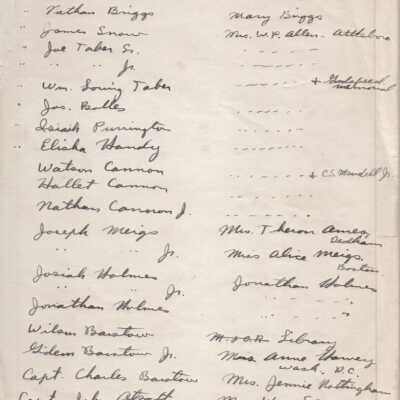 " Nathan Briggs Mary Briggs
" James Snow Mrs. W. P. Allen - Attleboro
" Joe Taber Sr. - - - - - -
" " Jr. - - - - - -
" Wm. Loring Taber - - - - - + Gadspeed memorial
" Jos. Bolles - - - - - -
" Isiah Purrington - - - - - -
" Elisha Handy - - - - - -
Watson Cannon - - - - - + C.S. Mendell Jr.
Hallet Cannon - - - - - -
Nathan Cannon J. - - - - - -
Joseph Meigs Mrs. Theron Ames,
Dedham
" " Jr. Miss Alice Meigs,
Boston
Josiah Holmes Jonathan Holmes
" " Jr. " "
Jonathan Holmes " "
Wilson Barstow Library
Gideon Barstow Jr. Mrs. Anne
Wash. D.C.
Capt. Charles Barstow Mrs. Jennie Nottingham
Capt. Mrs.